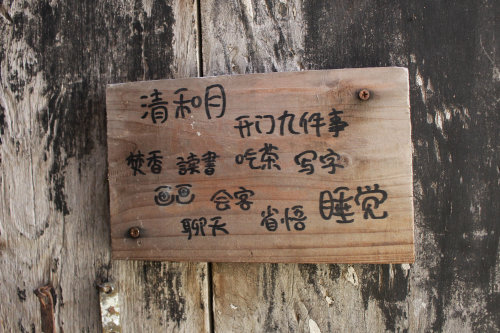 清和月
开门九件事
焚香 读書 吃茶 写字
画画 会客
聊天 省悟 睡觉